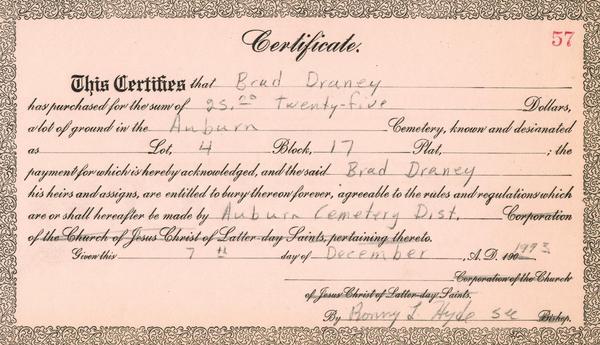 57
Certificate.
This Certifies that Brad Draney
has purchased for the sum of 25.00 Twenty-five Dollars,
a lot of ground in the Auburn Cemetery, known and designated
as Lot, 4 Block, 17 Plat, ; the
payment for which is hereby acknowledged, and the said Brad Draney
his heirs and assigns, are entitled to bury thereon forever, agreeable to the rules and regulations which
are or shall hereafter be made by Auburn Cemetery Dist. Corporation
of the Church of Jesus Christ of Latter-day Saints, pertaining thereto.
Given this 7th day of December, A.D. 190 1993
Corporation of the Church
of Jesus Christ of Latter-day Saints.
By Ronny L Hyde sec Bishop.